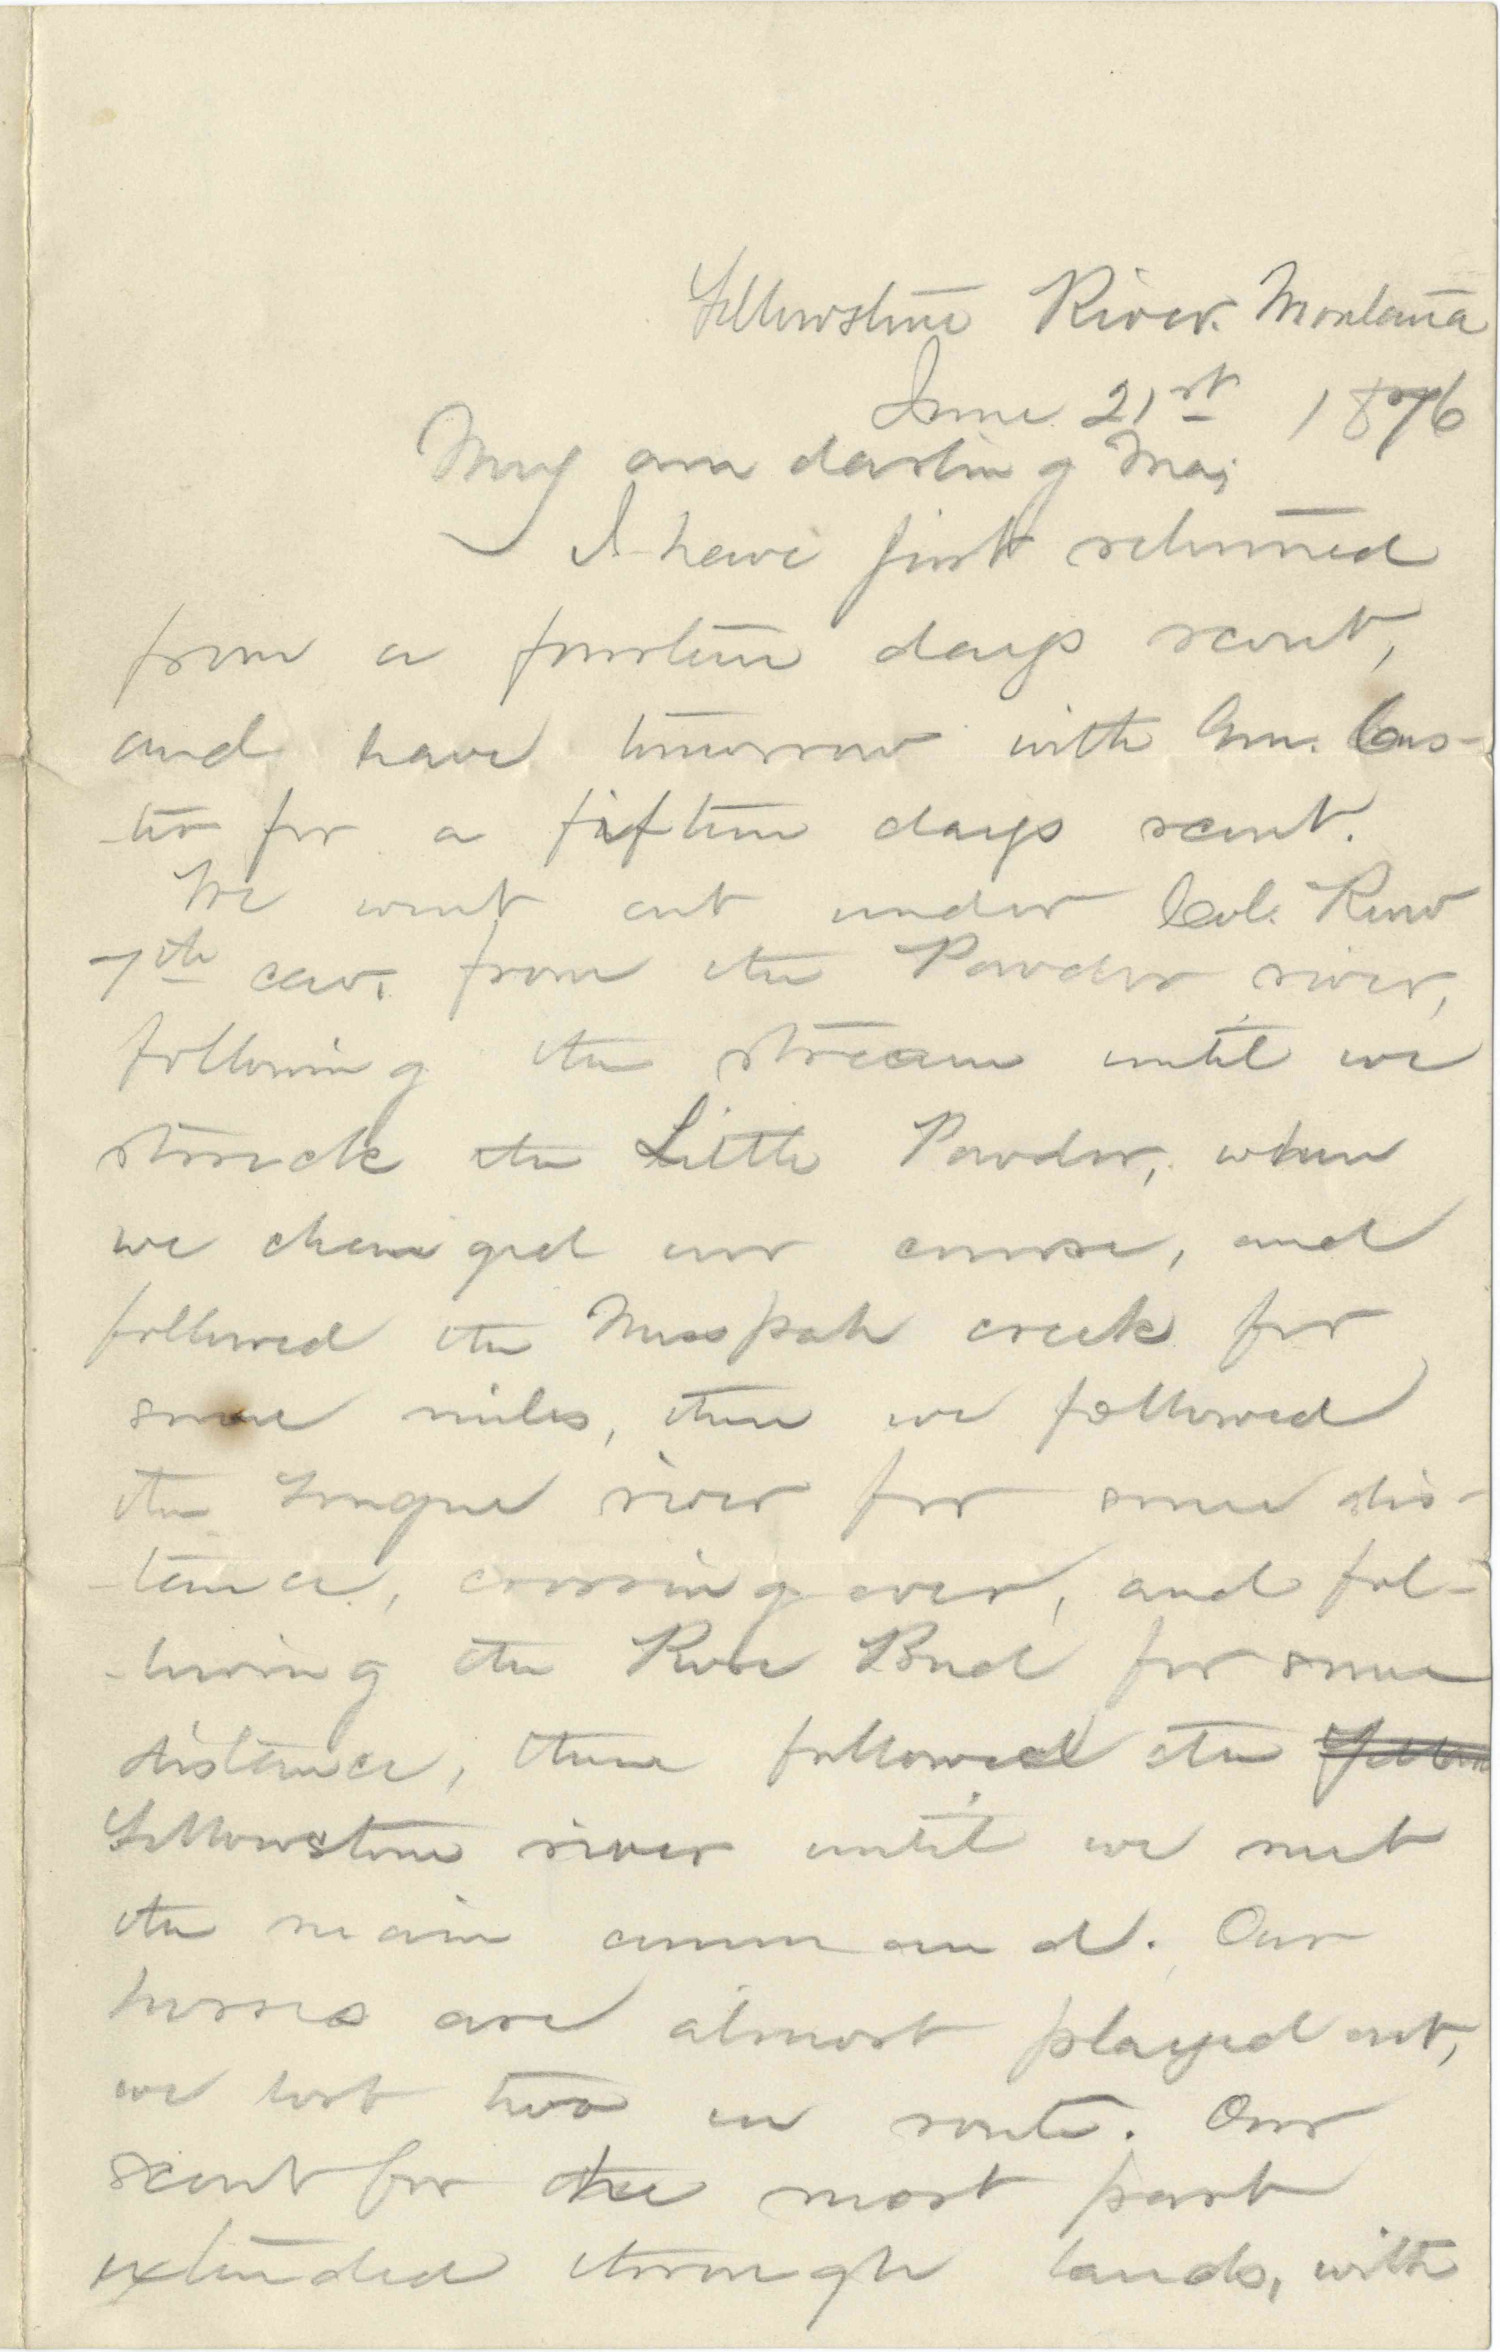 Yellowstone River. Montana
June 21st 1876
My own darling Ma;
I have just returned
from a fourteen days scout,
and leave tomorrow with Gen. Cus-
-ter for a fifteen days scout.
We went out under Col. Reno
7th cav. from the Powder river,
following the stream until we
struck the Little Powder, when
we changed our course, and
followed the Misspah creek for
some miles, then we followed
the Tongue river for some dis-
-tance, crossing over, and fol-
-lowing the Rose Bud for some
distance, then followed the
Yellowstone river until we met
the main command. Our
horses are almost played out,
we lost two en route. Our
scout for the most part
extended through lands, with